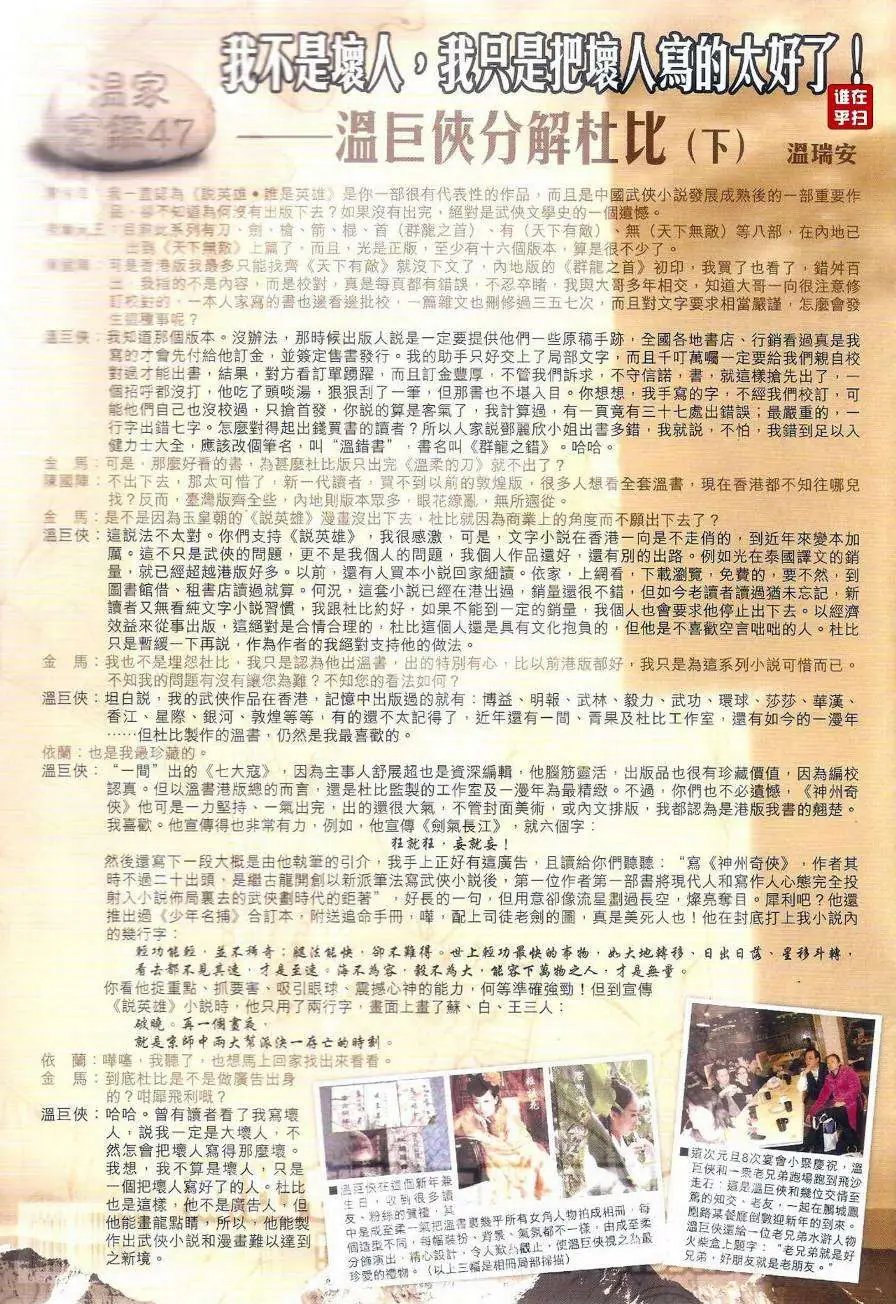 我不是壞人，我只是把壞人寫的太好了！
溫家
47
誰在
乎扫
——溫巨俠分解杜比（下） 溫瑞安
我一直認為《說英雄•誰是英雄》是你一部很有代表性的作品，而且是中國武俠小說發展成熟後的一部重要作
品，卻不知道為何沒有出版下去？如果沒有出完，絕對是武俠文學史的一個遺憾。
目前此系列有刀、劍、槍、箭、棍、首（群龍之首）、有（天下有敵）、無（天下無敵）等八部，在內地已
出到《天下無敵》上篇了，而且，光是正版，至少有十六個版本，算是很不少了。
陳國陣：可是香港版我最多只能找齊《天下有敵》就沒下文了，內地版的《群龍之首》初印，我買了也看了，錯舛百
出，我指的不是內容，而是校對，真是每頁都有錯誤，不忍卒睹，我與大哥多年相交，知道大哥一向很注意修
訂校對的，一本人家寫的書也邊看邊批校，一篇雜文也刪修過三五七次，而且對文字要求相當嚴謹，怎麼會發
生這種事呢？
溫巨俠：我知道那個版本。沒辦法，那時候出版人說是一定要提供他們一些原稿手跡，全國各地書店、行銷看過真是我
寫的才會先付給他訂金，並簽定售書發行。我的助手只好交上了局部文字，而且千叮萬囑一定要給我們親自校
對過才能出書，結果，對方看訂單踴躍，而且訂金豐厚，不管我們訴求，不守信諾，書，就這樣搶先出了，一
個招呼都沒打，他吃了頭啖湯，狠狠刮了一筆，但那書也不堪入目。你想想，我手寫的字，不經我們校訂，可
能他們自己也沒校過，只搶首發，你說的算是客氣了，我計算過，有一頁竟有三十七處出錯誤；最嚴重的，一
行字出錯七字。怎麼對得起出錢買書的讀者？所以人家說鄧麗欣小姐出書多錯，我就說，不怕，我錯到足以入
健力士大全，應該改個筆名，叫“溫錯書”，書名叫《群龍之錯》。哈哈。
金　馬：可是，那麼好看的書，為甚麼杜比版只出完《溫柔的刀》就不出了？
陳國陣：不出下去，那太可惜了，新一代讀者，買不到以前的敦煌版，很多人想看全套溫書，現在香港都不知往哪兒
找？反而，臺灣版齊全些，內地則版本眾多，眼花繚亂，無所適從。
金　馬：是不是因為玉皇朝的《說英雄》漫畫沒出下去，杜比就因為商業上的角度而不願出下去了？
溫巨俠：這說法不太對。你們支持《說英雄》，我很感激，可是，文字小說在香港一向是不走俏的，到近年來變本加
厲。這不只是武俠的問題，更不是我個人的問題，我個人作品還好，還有別的出路。例如光在泰國譯文的銷
量，就已經超越港版好多。以前，還有人買本小說回家細讀。依家，上網看，下載瀏覽，免費的，要不然，到
圖書館借、租書店讀過就算。何況，這套小說已經在港出過，銷量還很不錯，但如今老讀者讀過猶未忘記，新
讀者又無看純文字小說習慣，我跟杜比約好，如果不能到一定的銷量，我個人也會要求他停止出下去。以經濟
效益來從事出版，這絕對是合情合理的，杜比這個人還是具有文化抱負的，但他是不喜歡空言咄咄的人。杜比
只是暫緩一下再說，作為作者的我絕對支持他的做法。
金　馬：我也不是埋怨杜比，我只是認為他出溫書，出的特別有心，比以前港版都好，我只是為這系列小說可惜而已。
不知我的問題有沒有讓您為難？不知您的看法如何？
溫巨俠：坦白說，我的武俠作品在香港，記憶中出版過的就有：博益、明報、武林、毅力、武功、環球、莎莎、華漢、
香江、星際、銀河、敦煌等等，有的還不太記得了，近年還有一間、青果及杜比工作室，還有如今的一漫年
……但杜比製作的溫書，仍然是我最喜歡的。
依蘭：也是我最珍藏的。
溫巨俠：“一間”出的《七大寇》，因為主事人舒展超也是資深編輯，他腦筋靈活，出版品也很有珍藏價值，因為編校
認真。但以溫書港版總的而言，還是杜比監製的工作室及一漫年為最精緻。不過，你們也不必遺憾，《神州奇
俠》他可是一力堅持、一氣出完，出的還很大氣，不管封面美術，或內文排版，我都認為是港版我書的翹楚。
我喜歡。他宣傳得也非常有力，例如，他宣傳《劍氣長江》，就六個字：
狂就狂，妄就妄！
然後還寫下一段大概是由他執筆的引介，我手上正好有這廣告，且讀給你們聽聽：“寫《神州奇俠》，作者其
時不過二十出頭，是繼古龍開創以新派筆法寫武俠小說後，第一位作者第一部書將現代人和寫作人心態完全投
射入小說佈局裏去的武俠劃時代的鉅著”，好長的一句，但用意卻像流星劃過長空，燦亮奪目。犀利吧？他還
推出過《少年名捕》合訂本，附送追命手冊，嘩，配上司徒老劍的圖，真是美死人也！他在封底打上我小說內
的幾行字：
輕功能輕，並不稀奇；腿法能快，卻不難得。世上輕功最快的事物，如大地轉移、日出日落、星移斗轉，
看去都不見其速，才是至速。海不為容，穀不為大，能容下萬物之人，才是無量。
你看他捉重點、抓要害、吸引眼球、震撼心神的能力，何等準確強勁！但到宣傳
《說英雄》小說時，他只用了兩行字，畫面上畫了蘇、白、王三人：
破曉。再一個晝夜，
就是京師中兩大幫派決一存亡的時刻。
依　蘭：嘩噻，我聽了，也想馬上回家找出來看看。
金　馬：到底杜比是不是做廣告出身
的？咁犀飛利嘅？
溫巨俠：哈哈。曾有讀者看了我寫壞
人，說我一定是大壞人，不
然怎會把壞人寫得那麼壞。
我想，我不算是壞人，只是
一個把壞人寫好了的人。杜比
也是這樣，他不是廣告人，但
他能畫龍點睛，所以，他能製
作出武俠小說和漫畫難以達到
之新境。
■溫巨俠在這個新年兼
生日，收到很多讀
友、粉絲的賀禮，其
中是成至柔一氣把溫書裏幾乎所有女角人物拍成相冊，每
個造型不同，每幅裝扮、背景、氣氛都不一樣，由成至柔
分飾演出，精心設計，令人歎為觀止，使溫巨俠視之為最
珍愛的禮物。（以上三幅是相冊局部掃描）
■這次元旦8次宴會小聚慶祝，溫
巨俠和一眾老兄弟跑場跑到飛沙
走石：這是溫巨俠和幾位交情至
篤的知交、老友，一起在鵬城鳳
凰路某餐廳倒數迎新年的到來。
溫巨俠還給一位老兄弟水滸人物
火柴盒上題字：“老兄弟就是好
兄弟，好朋友就是老朋友。”